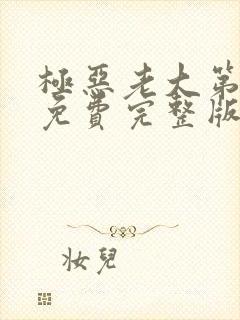 極惡老大第
免費完整版
妝兒